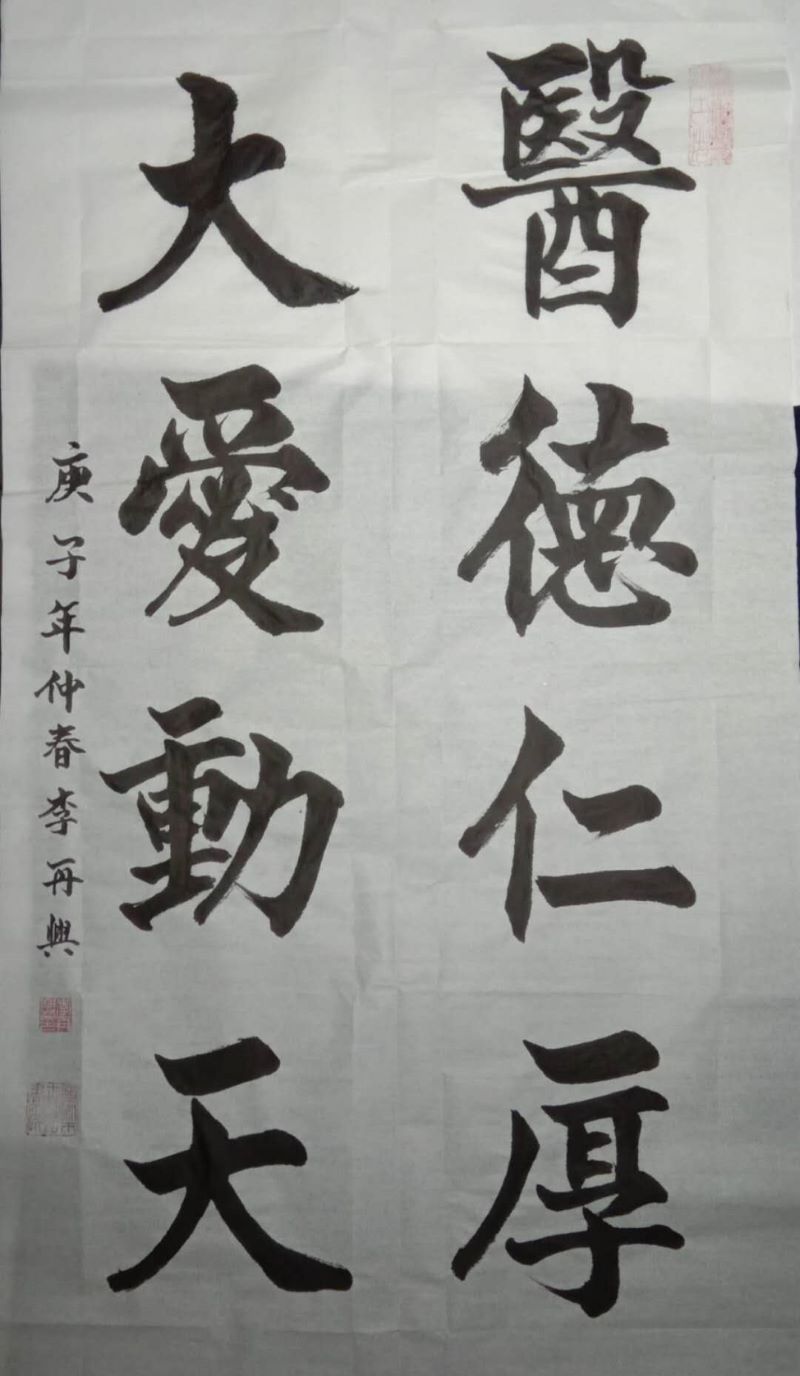 醫德仁厚
大愛動天
庚子年仲春李再興